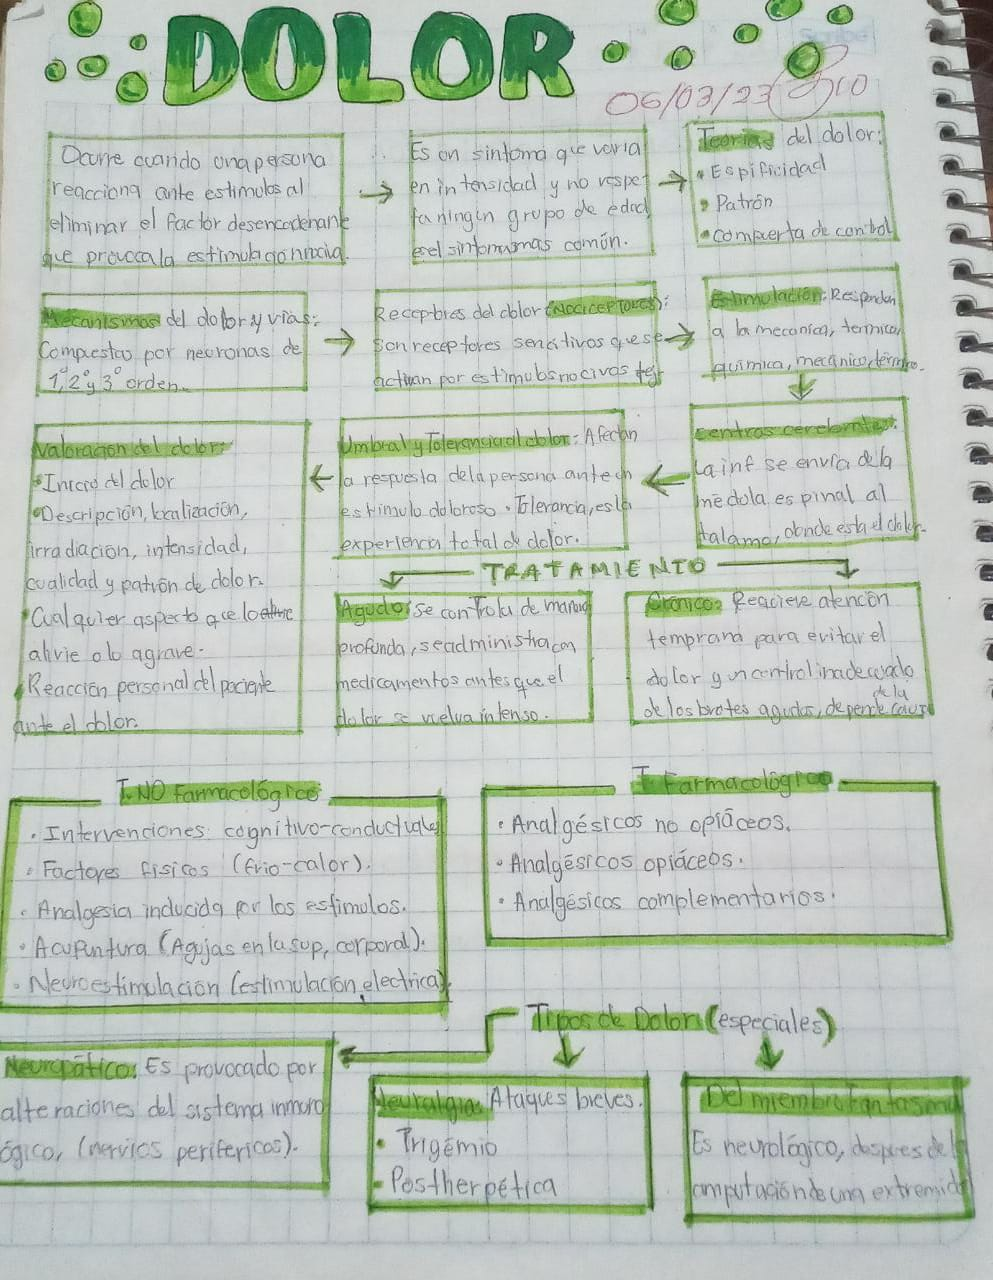 DOLOR
06/03/23 10
Ocurre cuando una persona
reacciona ante estimulos al
eliminar el factor desencadenante
que provoca la estimulación nociva.
Es un sintoma que varia
en intensidad y no respe
ta ningún grupo de edad
es el sintoma mas común.
Teorias del dolor:
• Espificidad
• Patrón
• compuerta de control
Mecanismos del dolor y vias:
Compuesta por neuronas de
1°, 2° y 3° orden.
Receptores del dolor (Nociceptores):
Son receptores sensitivos que se
activan por estimulos nocivos tej
Estimulación: Responden
a la mecanica, termica,
química, mecánico, térmico.
Centros cerebrales:
La inf se envía de la
médola espinal al
talamo, donde esta el dolor.
Umbral y Tolerancia al dolor: Afectan
la respuesta de la persona ante un
estimulo doloroso. Tolerancia, es la
experiencia total de dolor.
Valoración del dolor:
• Inicio del dolor
• Descripción, localización,
irradiación, intensidad,
cualidad y patrón de dolor.
• Cualquier aspecto que lo
alivie o lo agrave.
• Reacción personal del paciente
ante el dolor.
TRATAMIENTO
Agudo: se controla de manera
profunda, se administra con
medicamentos antes que el
dolor se vuelva intenso.
Crónico: Reaciere atención
temprana para evitar el
dolor y un control inadecuado
de los brotes agudos, depende de la causa
T. NO Farmacológico
• Intervenciones cognitivo-conductuales
• Factores fisicos (frio-calor).
• Analgesia inducida por los estimulos.
• Acupuntura (Agujas en la sup, corporal).
• Neuroestimulación (estimulación electrica).
T Farmacológico
• Analgésicos no opiáceos.
• Analgésicos opiáceos.
• Analgésicos complementarios.
Tipos de Dolor (especiales)
Neuropático: Es provocado por
alteraciones del sistema inmuno
ógico, (nervios perifericos).
Neuralgias Ataques breves.
• Trigémio
• Postherpética
Del miembro Fantasma
Es neurológico, despues de la
amputación de una extremida